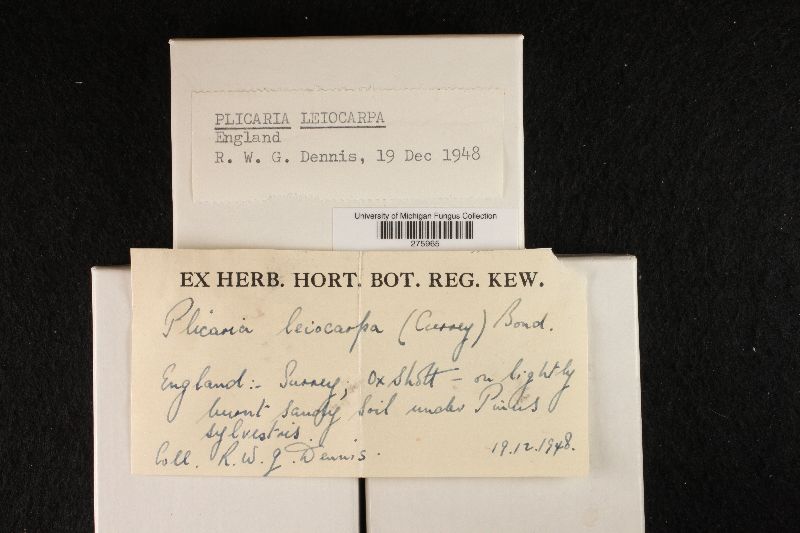 PLICARIA LEIOCARPA
England
R. W. G. Dennis, 19 Dec 1948
University of Michigan Fungus Collection
275965
EX HERB. HORT. BOT. REG. KEW.
Plicaria leiocarpa (Currey) Boud.
England:- Surrey; Oxshott - on lightly
burnt sandy soil under Pinus
sylvestris.
Coll. R.W.G. Dennis. 19.12.1948.